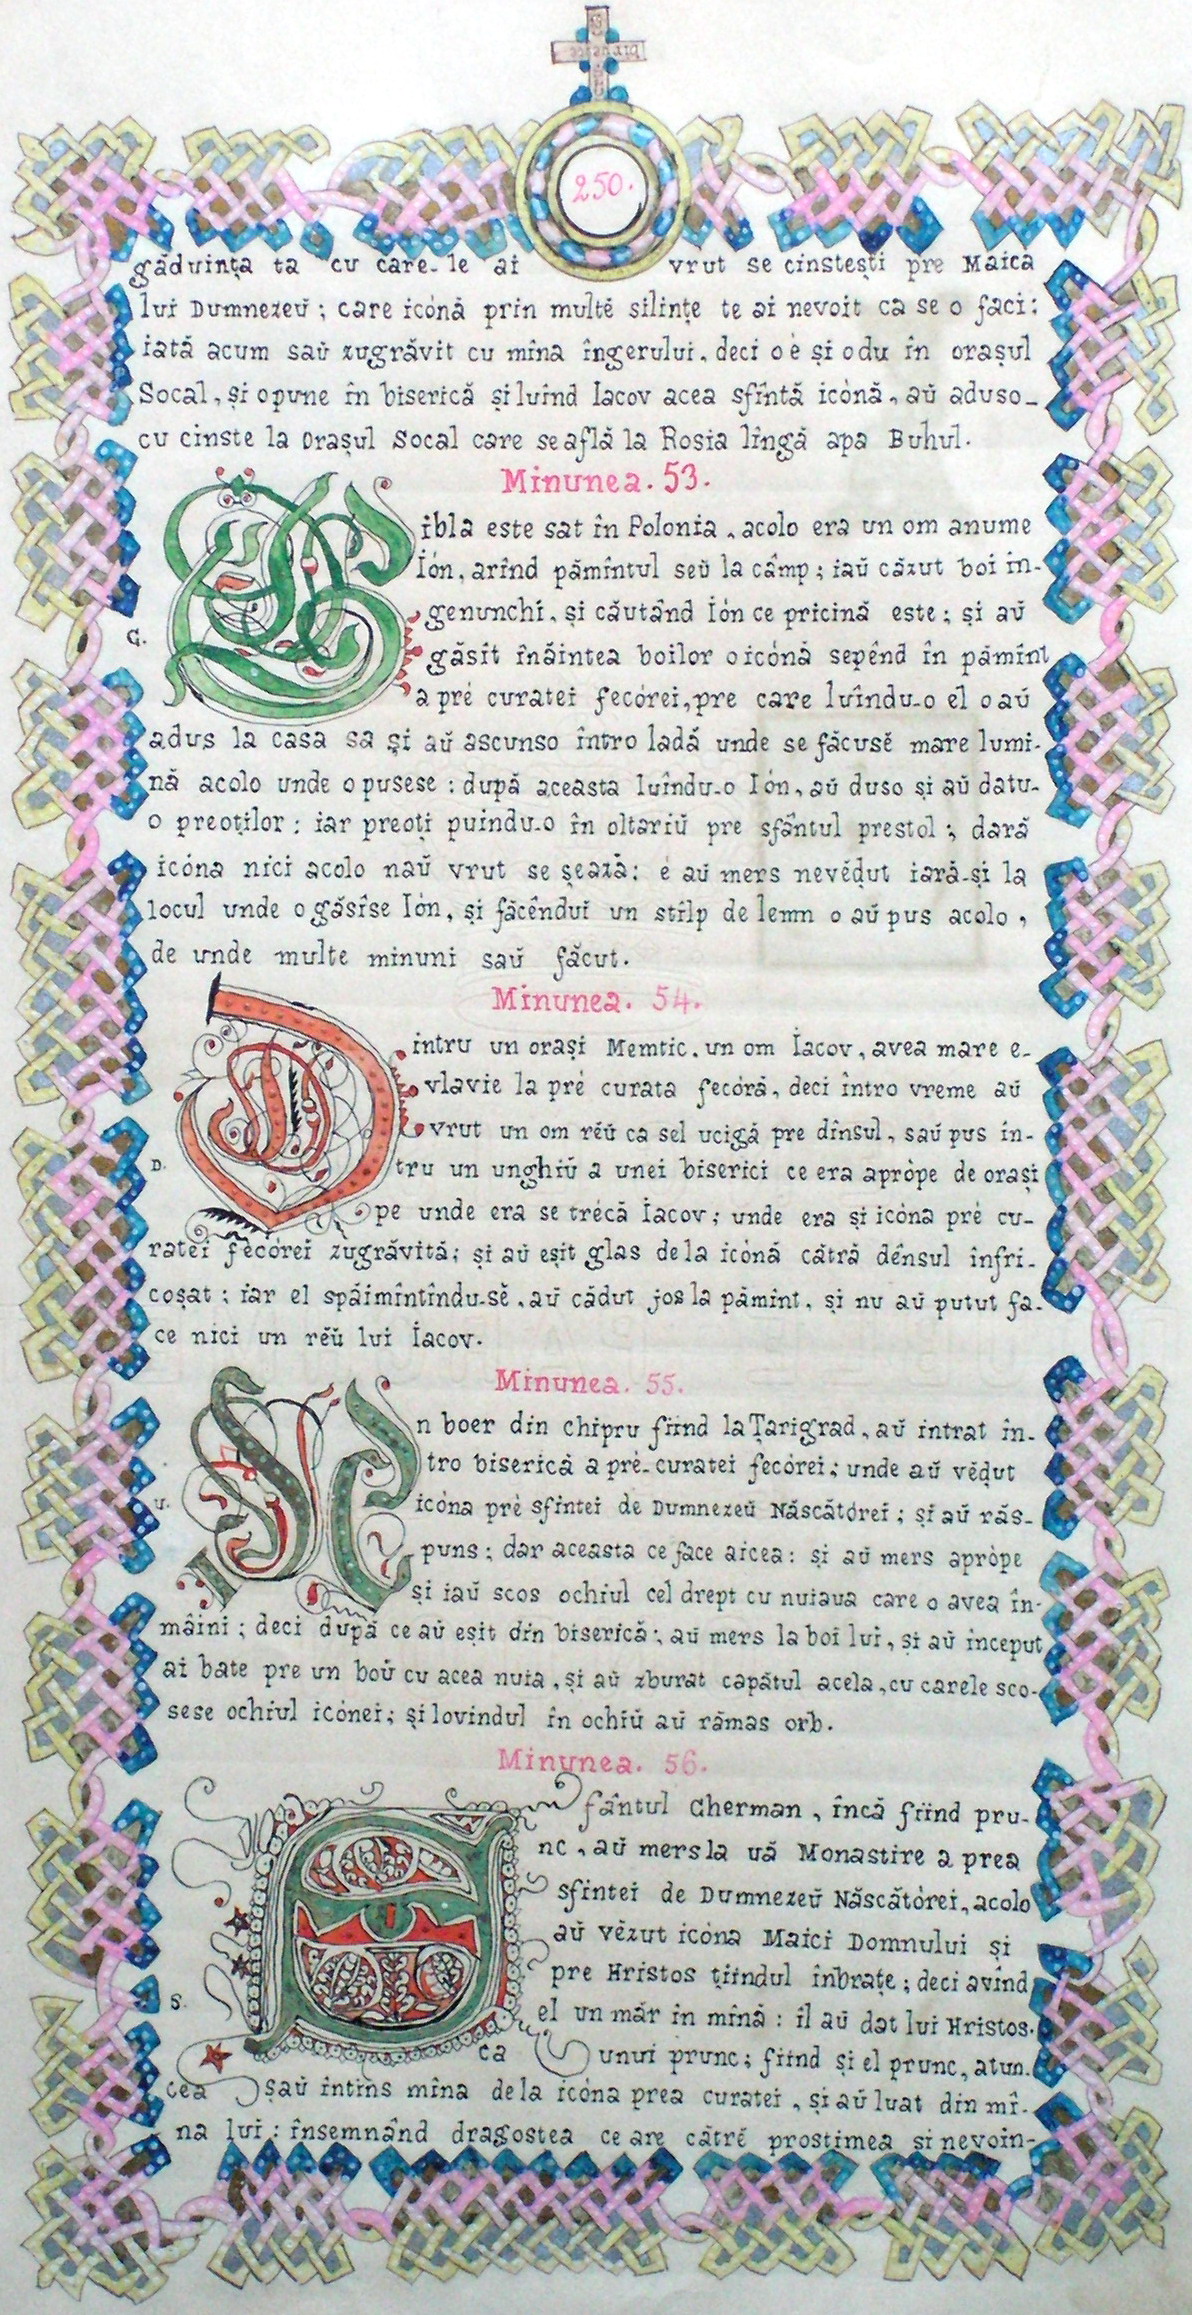 250.
găduința ta cu care-le ai vrut se cinstești pre Maica
lui Dumnezeŭ; care icónă prin multĕ silințe te ai nevoit ca se o faci;
iată acum saŭ zugrăvit cu mîna îngerului, deci o é și odu în orașul
Socal, și opune în biserică și luînd Iacov acea sfîntă icónă, aŭ aduso-
cu cinste la orașul Socal care se află la Rosia lîngă apa Buhul.
Minunea. 53.
G.
ibla este sat în Polonia, acolo era un om anume
Ión, arînd pămîntul seŭ la câmp; iaŭ căzut boi în-
genunchi, și căutând Ión ce pricină este; și aŭ
găsit înăintea boilor o icónă sepênd în pămînt
a pré curatei fecórei, pre care luîndu-o el o aŭ
adus la casa sa și aŭ ascunso întro ladă unde se făcusĕ mare lumi-
nă acolo unde o pusese: după aceasta luîndu-o Ión, aŭ duso și aŭ datu-
o preoților; iar preoți puindu-o în oltariŭ pre sfântul prestol; dară
icóna nici acolo naŭ vrut se șează; e aŭ mers nevĕdut iară-și la
locul unde o găsîse Ión, și făcênduĭ un stîlp de lemn o aŭ pus acolo,
de unde multe minuni saŭ făcut.
Minunea. 54.
D.
intru un orași Memtic, un om Iacov, avea mare e-
vlavie la pré curata fecóră, deci întro vreme aŭ
vrut un om rĕŭ ca sel ucigă pre dînsul, saŭ pus în-
tru un unghiŭ a unei biserici ce era apròpe de orași
pe unde era se trécă Iacov; unde era și icóna pré cu-
ratei fecórei zugrăvită; și aŭ eșit glas de la icónă cătră dênsul înfri-
coșat; iar el spăimîntîndu-sĕ, aŭ cădut jos la pămînt, și nu aŭ putut fa-
ce nici un rĕŭ lui Iacov.
Minunea. 55.
U.
n boer din chipru fiind la Țarigrad, aŭ intrat în-
tro biserică a pré-curatei fecórei; unde aŭ vĕdut
icóna pré sfintei de Dumnezeŭ Născătórei; și aŭ răs-
puns; dar aceasta ce face aicea: și aŭ mers apròpe
și iaŭ scos ochiul cel drept cu nuiaua care o avea în-
mâini; deci după ce aŭ eșit din biserică; aŭ mers la boi lui, și aŭ început
ai bate pre un boŭ cu acea nuia, și aŭ zburat capătul acela, cu carele sco-
sese ochiul icónei; și lovindul în ochiŭ aŭ rămas orb.
Minunea. 56.
S.
fântul Gherman, încă fiind pru-
nc, aŭ mers la uă Monastire a prea
sfintei de Dumnezeŭ Născătórei, acolo
aŭ vĕzut icóna Maici Domnului și
pre Hristos țiindul înbrațe; deci avînd
el un măr în mînă: îl aŭ dat lui Hristos.
ca unui prunc; fiind și el prunc, atun-
cea șaŭ intins mîna de la icóna prea curatei, și aŭ luat din mî-
na lui: însemnând dragostea ce are cătrĕ prostimea și nevoin-